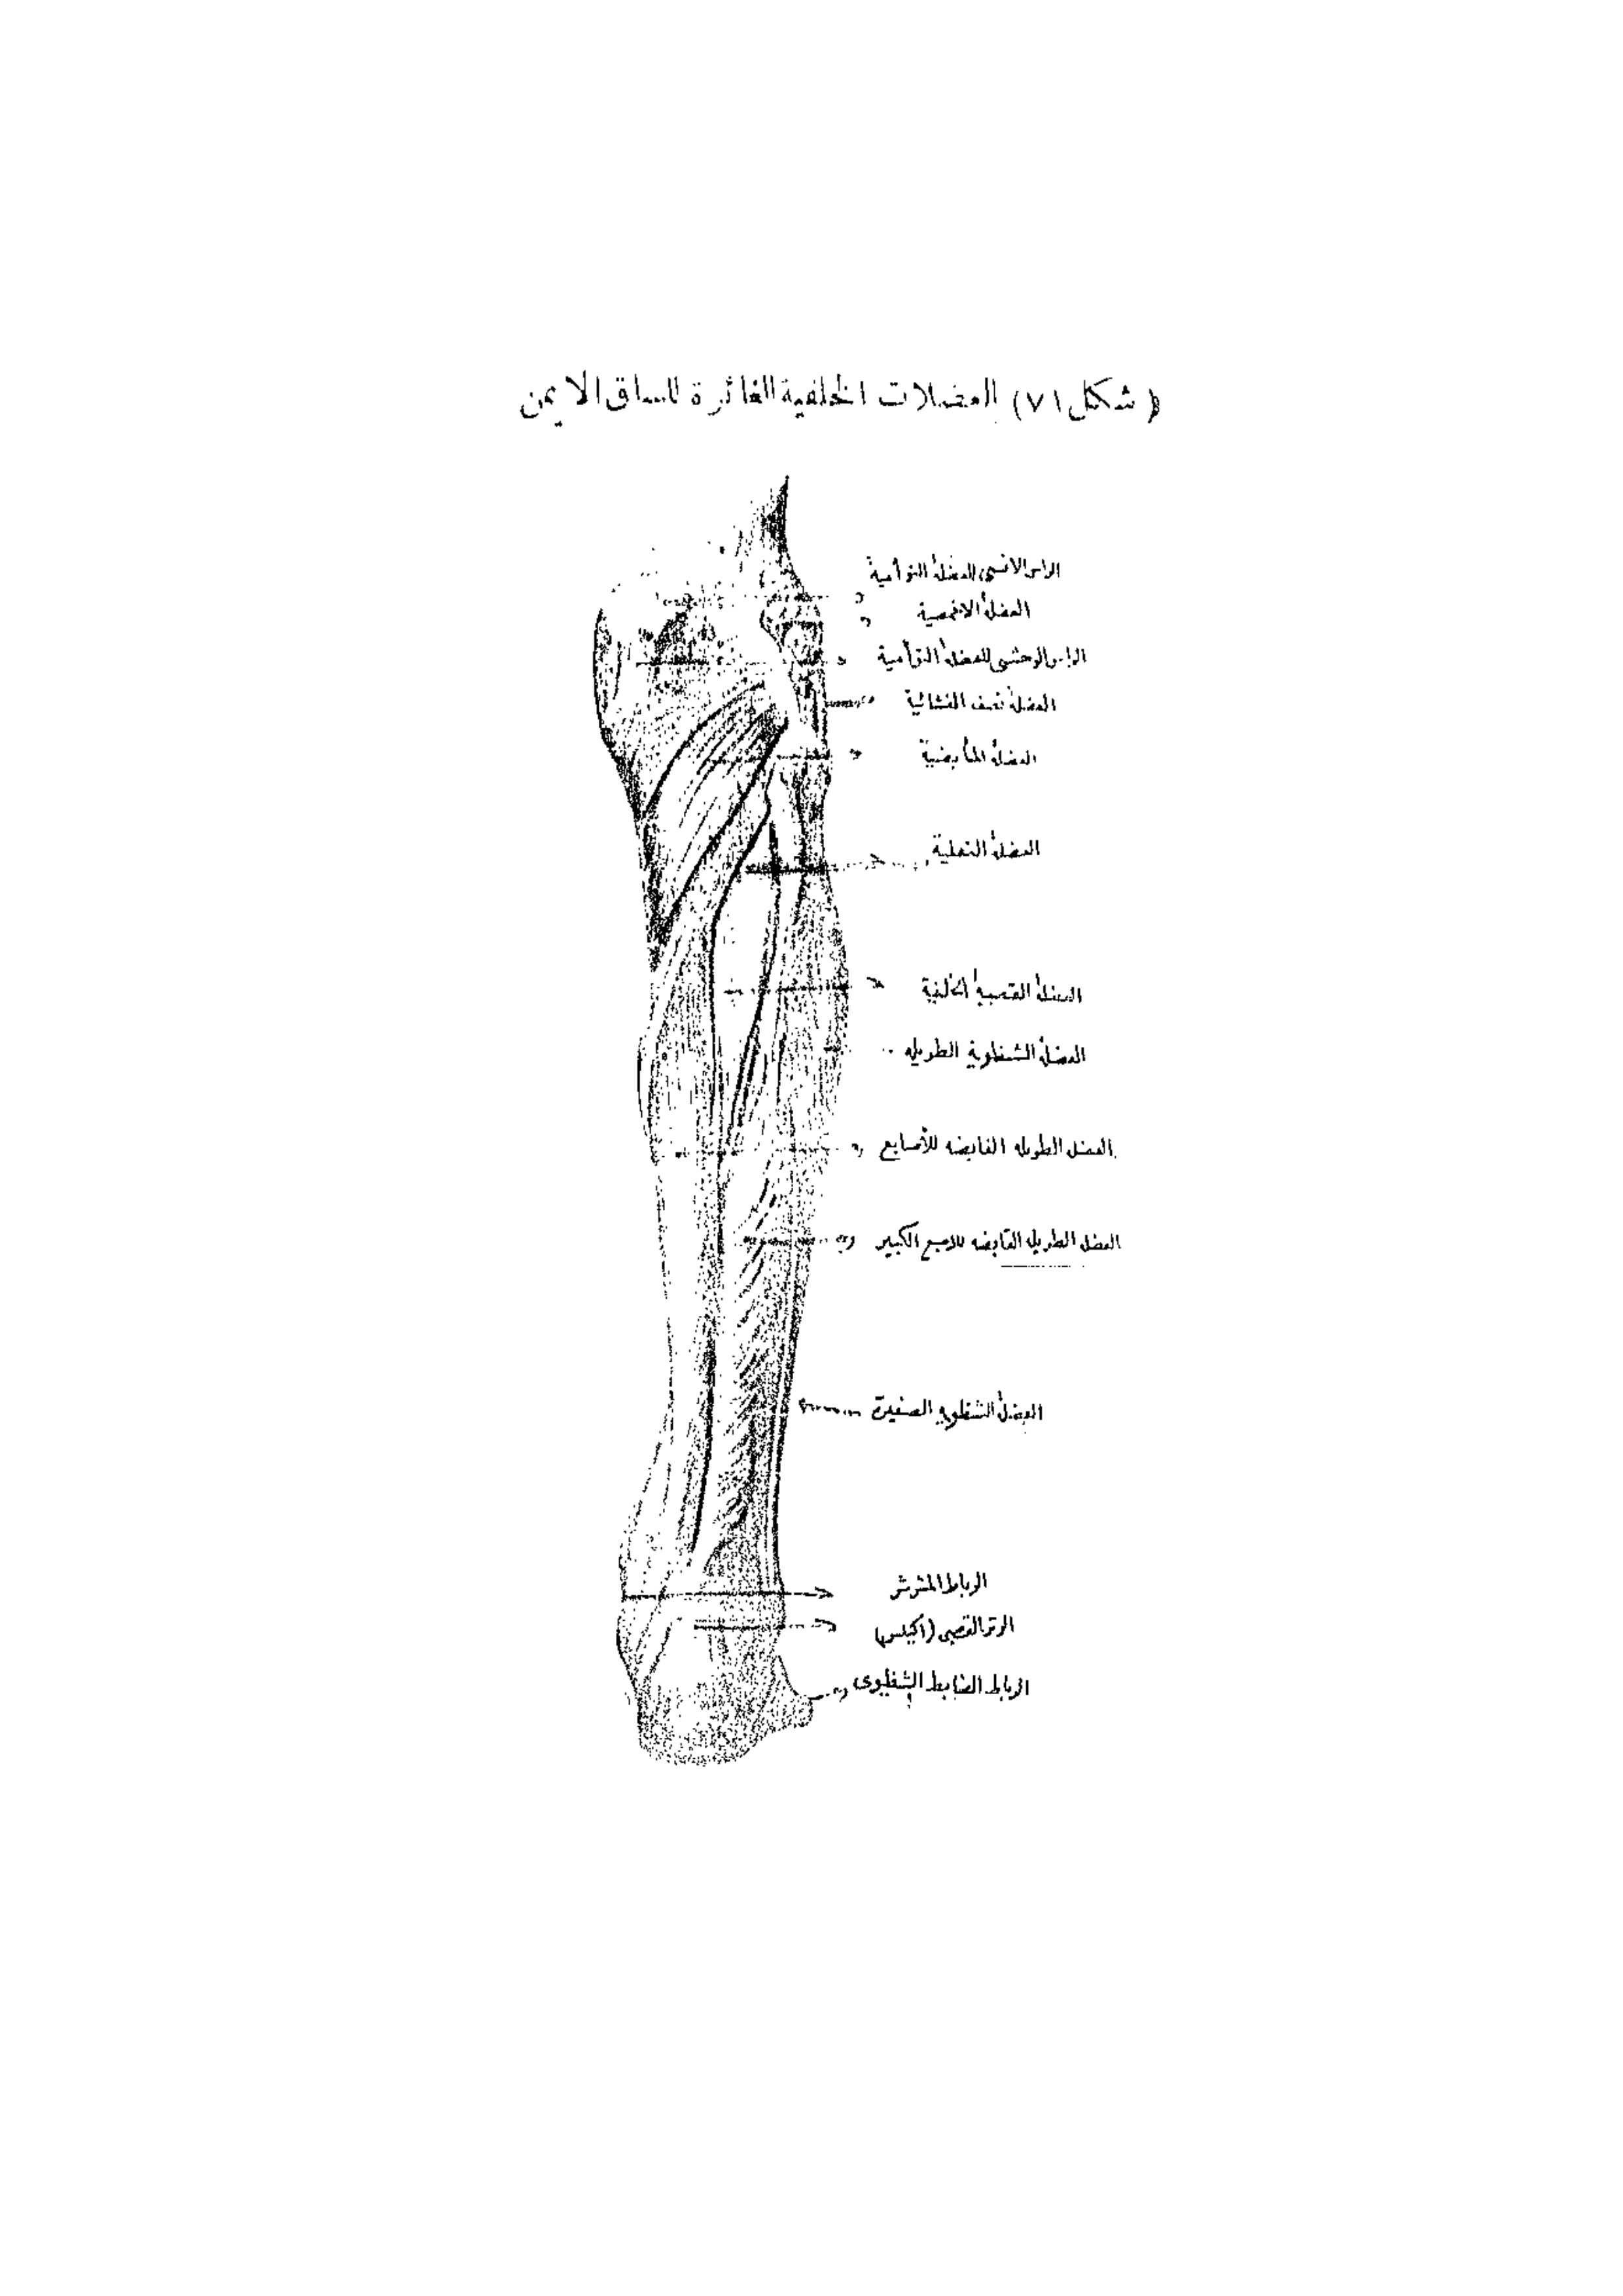 (شكل ٧١) العضلات الخلفية الغائرة للساق الايمن
الراس الانسى للعضلة التوأمية
العضلة الاخمصية
الراس الوحشى للعضلة التوأمية
العضلة نصف الغشائية
العضلة المأبضية
العضلة النعلية
العضلة القصبية الخلفية
العضلة الشظوية الطويله
العضله الطويله القابضه للأصابع
العضله الطويله القابضه للاصبع الكبير
العضلة الشظويه الصغيرة
الرباط المشرشر
الوتر القصبى (اكيلس)
الرباط الضابط الشظوى